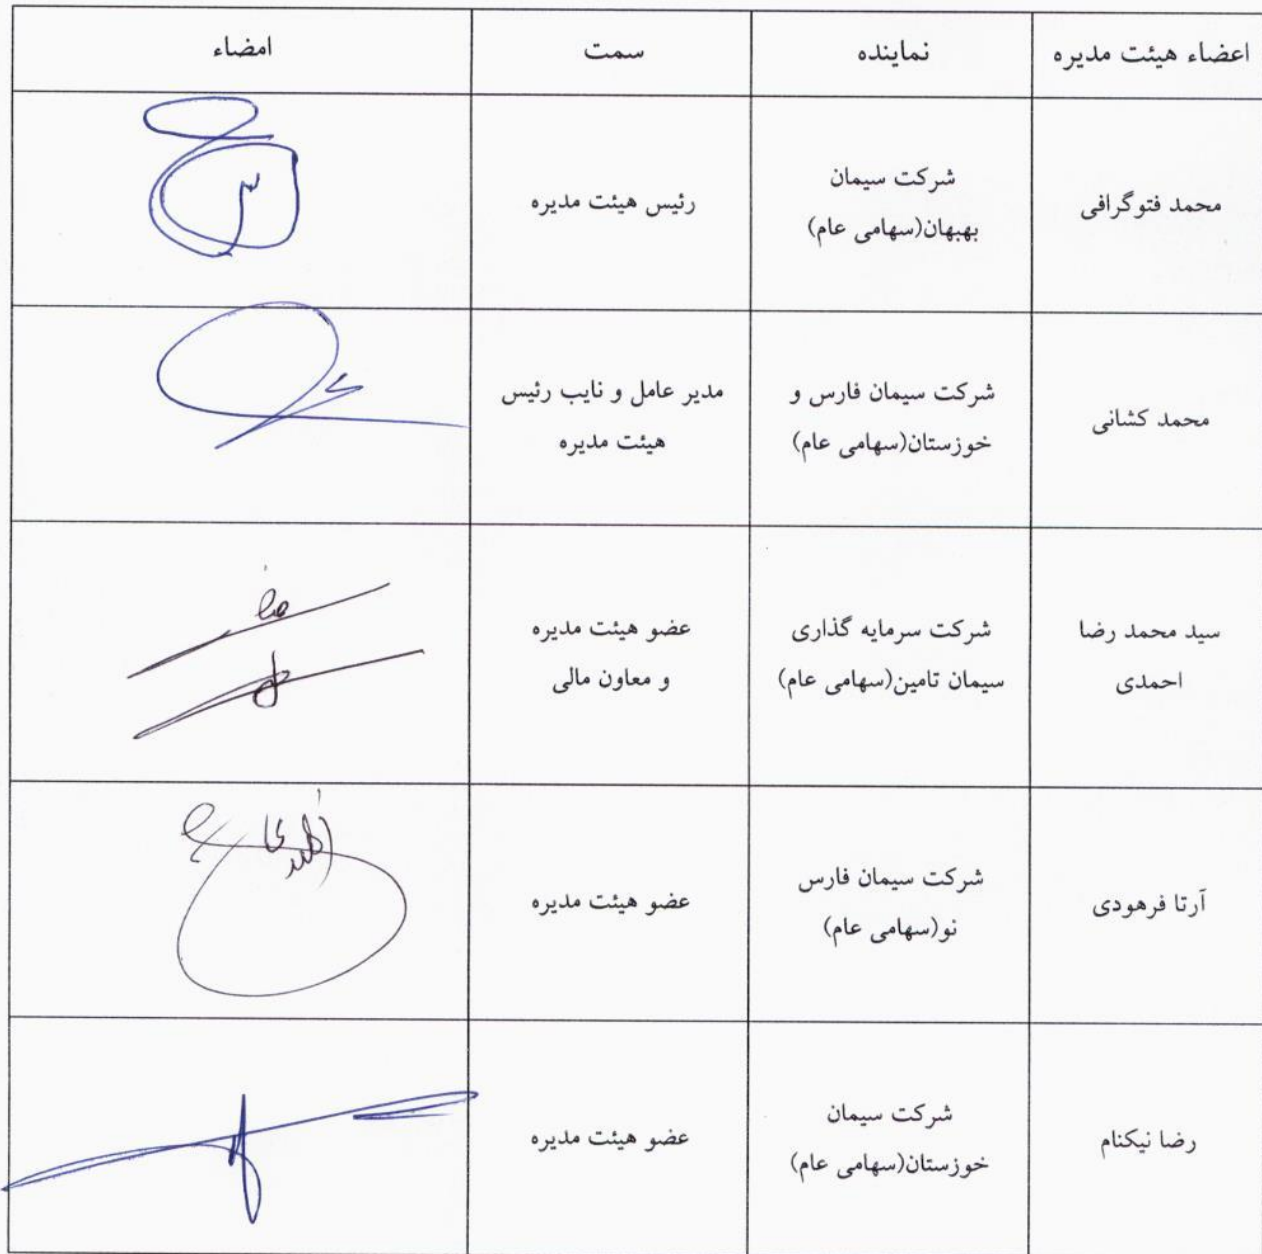 اعضاء هیئت مدیره نماینده سمت امضاء
محمد فتوگرافی
شرکت سیمان
بهبهان(سهامی عام)
رئیس هیئت مدیره
محمد کشانی
شرکت سیمان فارس و
خوزستان(سهامی عام)
مدیر عامل و نایب رئیس
هیئت مدیره
سید محمد رضا
احمدی
شرکت سرمایه گذاری
سیمان تامین(سهامی عام)
عضو هیئت مدیره
و معاون مالی
آرتا فرهودی
شرکت سیمان فارس
نو(سهامی عام)
عضو هیئت مدیره
رضا نیکنام
شرکت سیمان
خوزستان(سهامی عام)
عضو هیئت مدیره